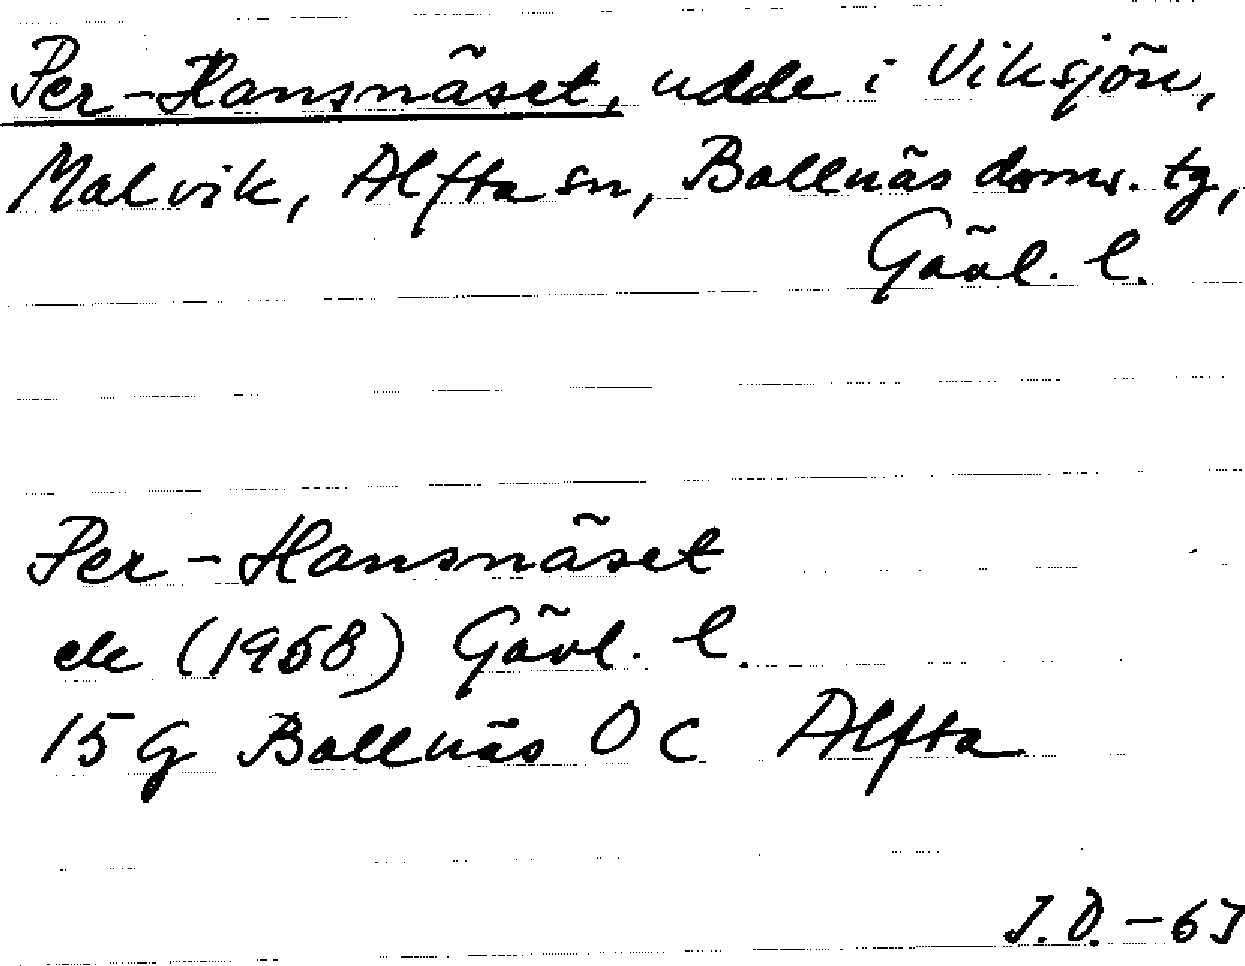 Per-Hansnäset, udde i Viksjön,
Malvik, Alfta sn, Bollnäs doms. tg,
Gävl. l.
Per-Hansnäset
ek (1958) Gävl. l.
15 G Bollnäs O C Alfta
J.D. -63